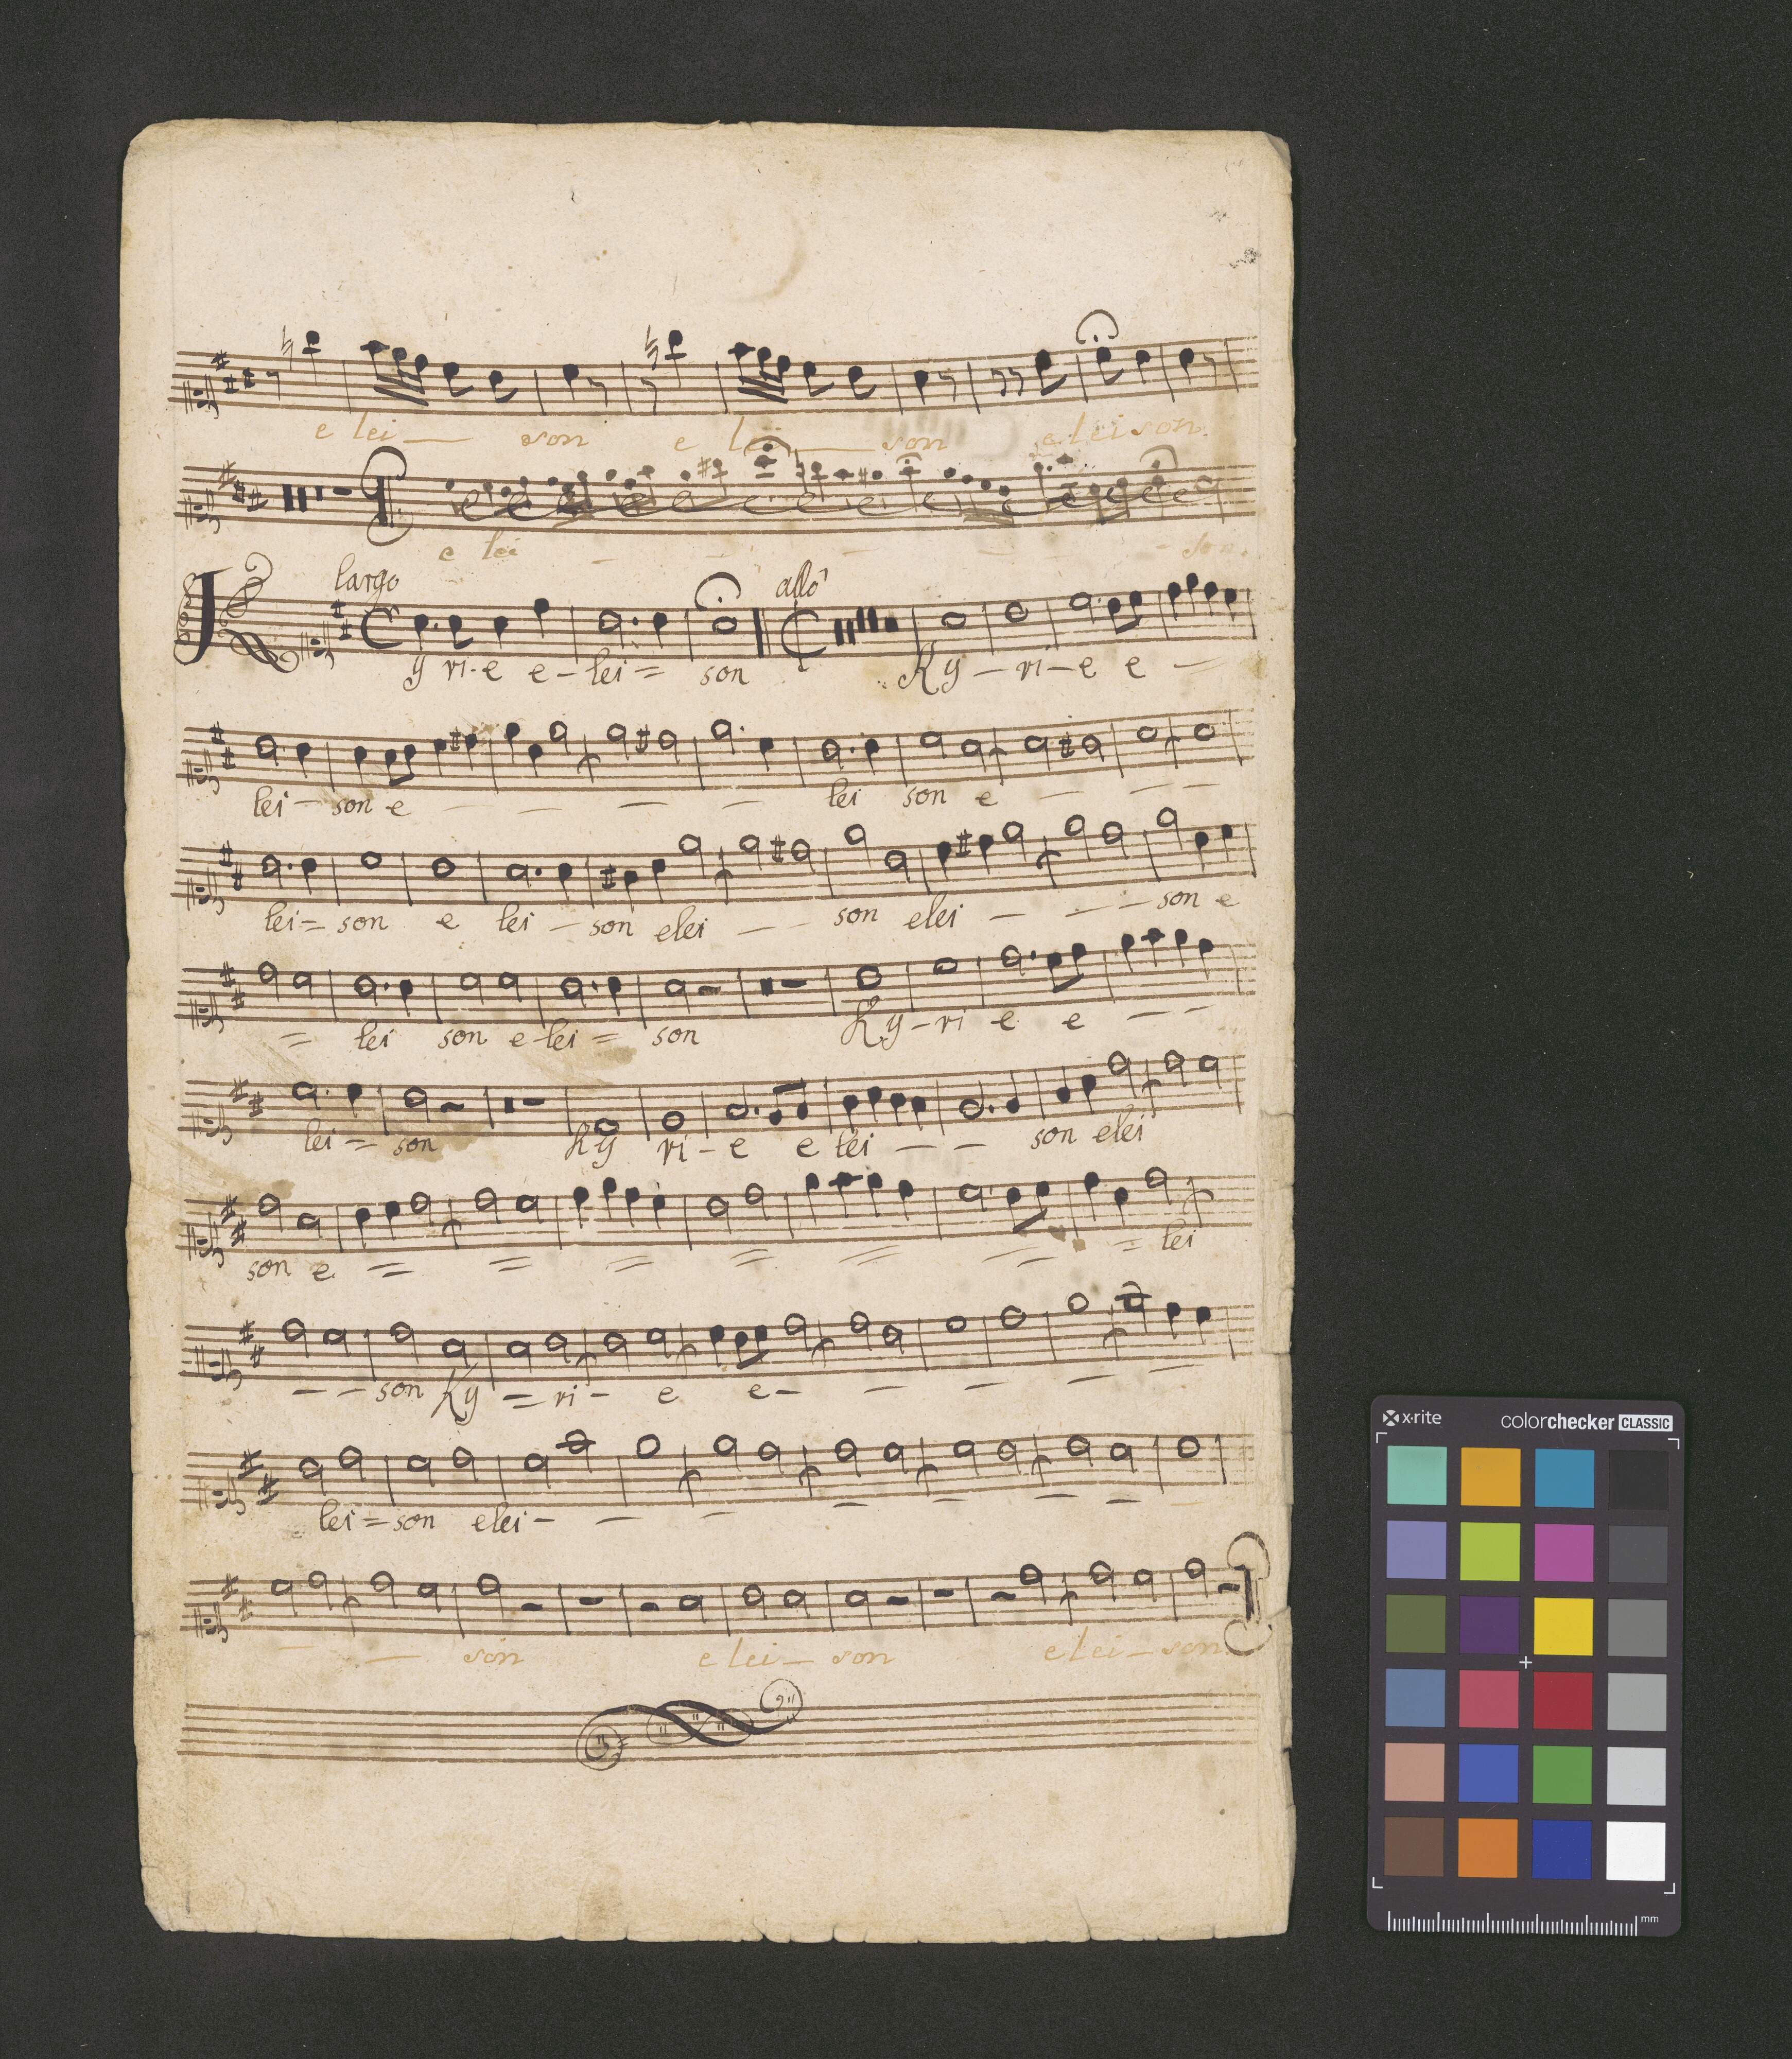 e lei — son e lei — son e lei son.
e lei - - - - - son.
largo allo
y ri-e e-lei= son Ky-ri-e e —
lei-son e — — — — lei son e — — —
lei= son e lei -son elei — — son elei — — — son e
= lei son e-lei= son Ky-ri e e — —
lei= son Ky ri-e e lei — — son elei
son e = = = = = = = lei
— — son Ky = ri- e e- — — — —
lei=son elei- — — — — — — —
— — son e lei — son e lei — son.
x·rite colorchecker CLASSIC
mm